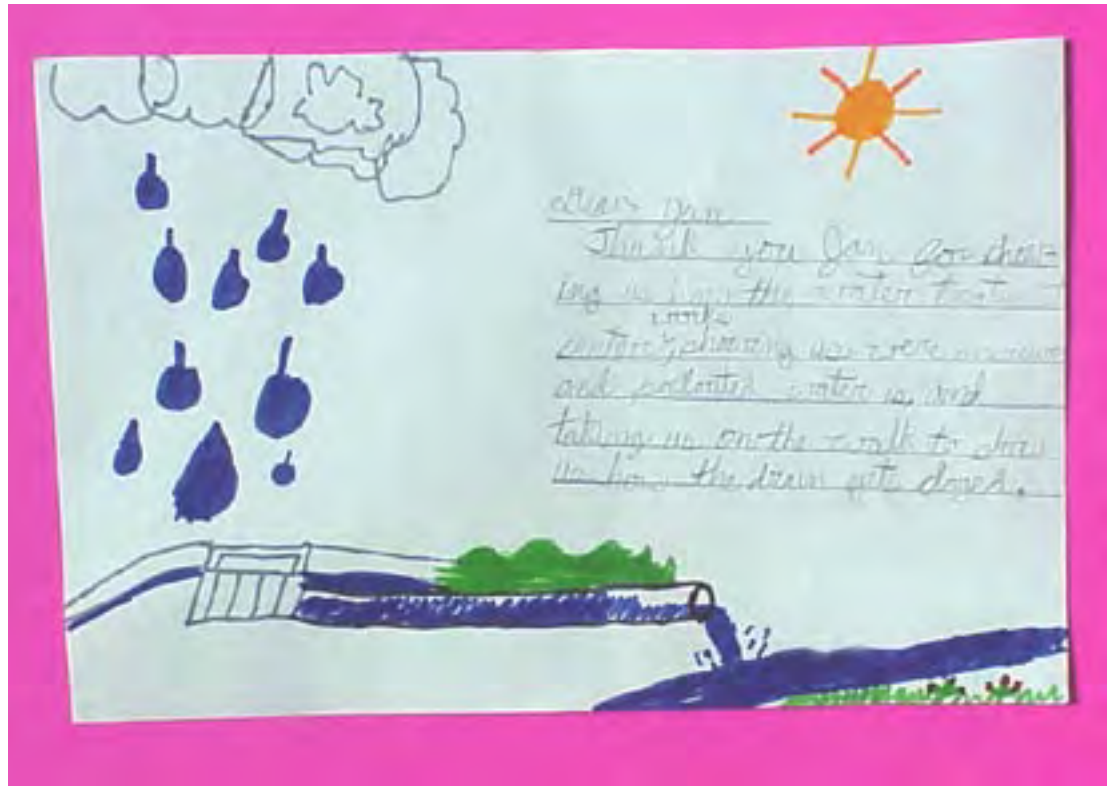 Dear Jan
Thank you Jan for show-
ing us how the water
works
showing us were
and water is, and
taking us on the walk to show
us how the drain gets